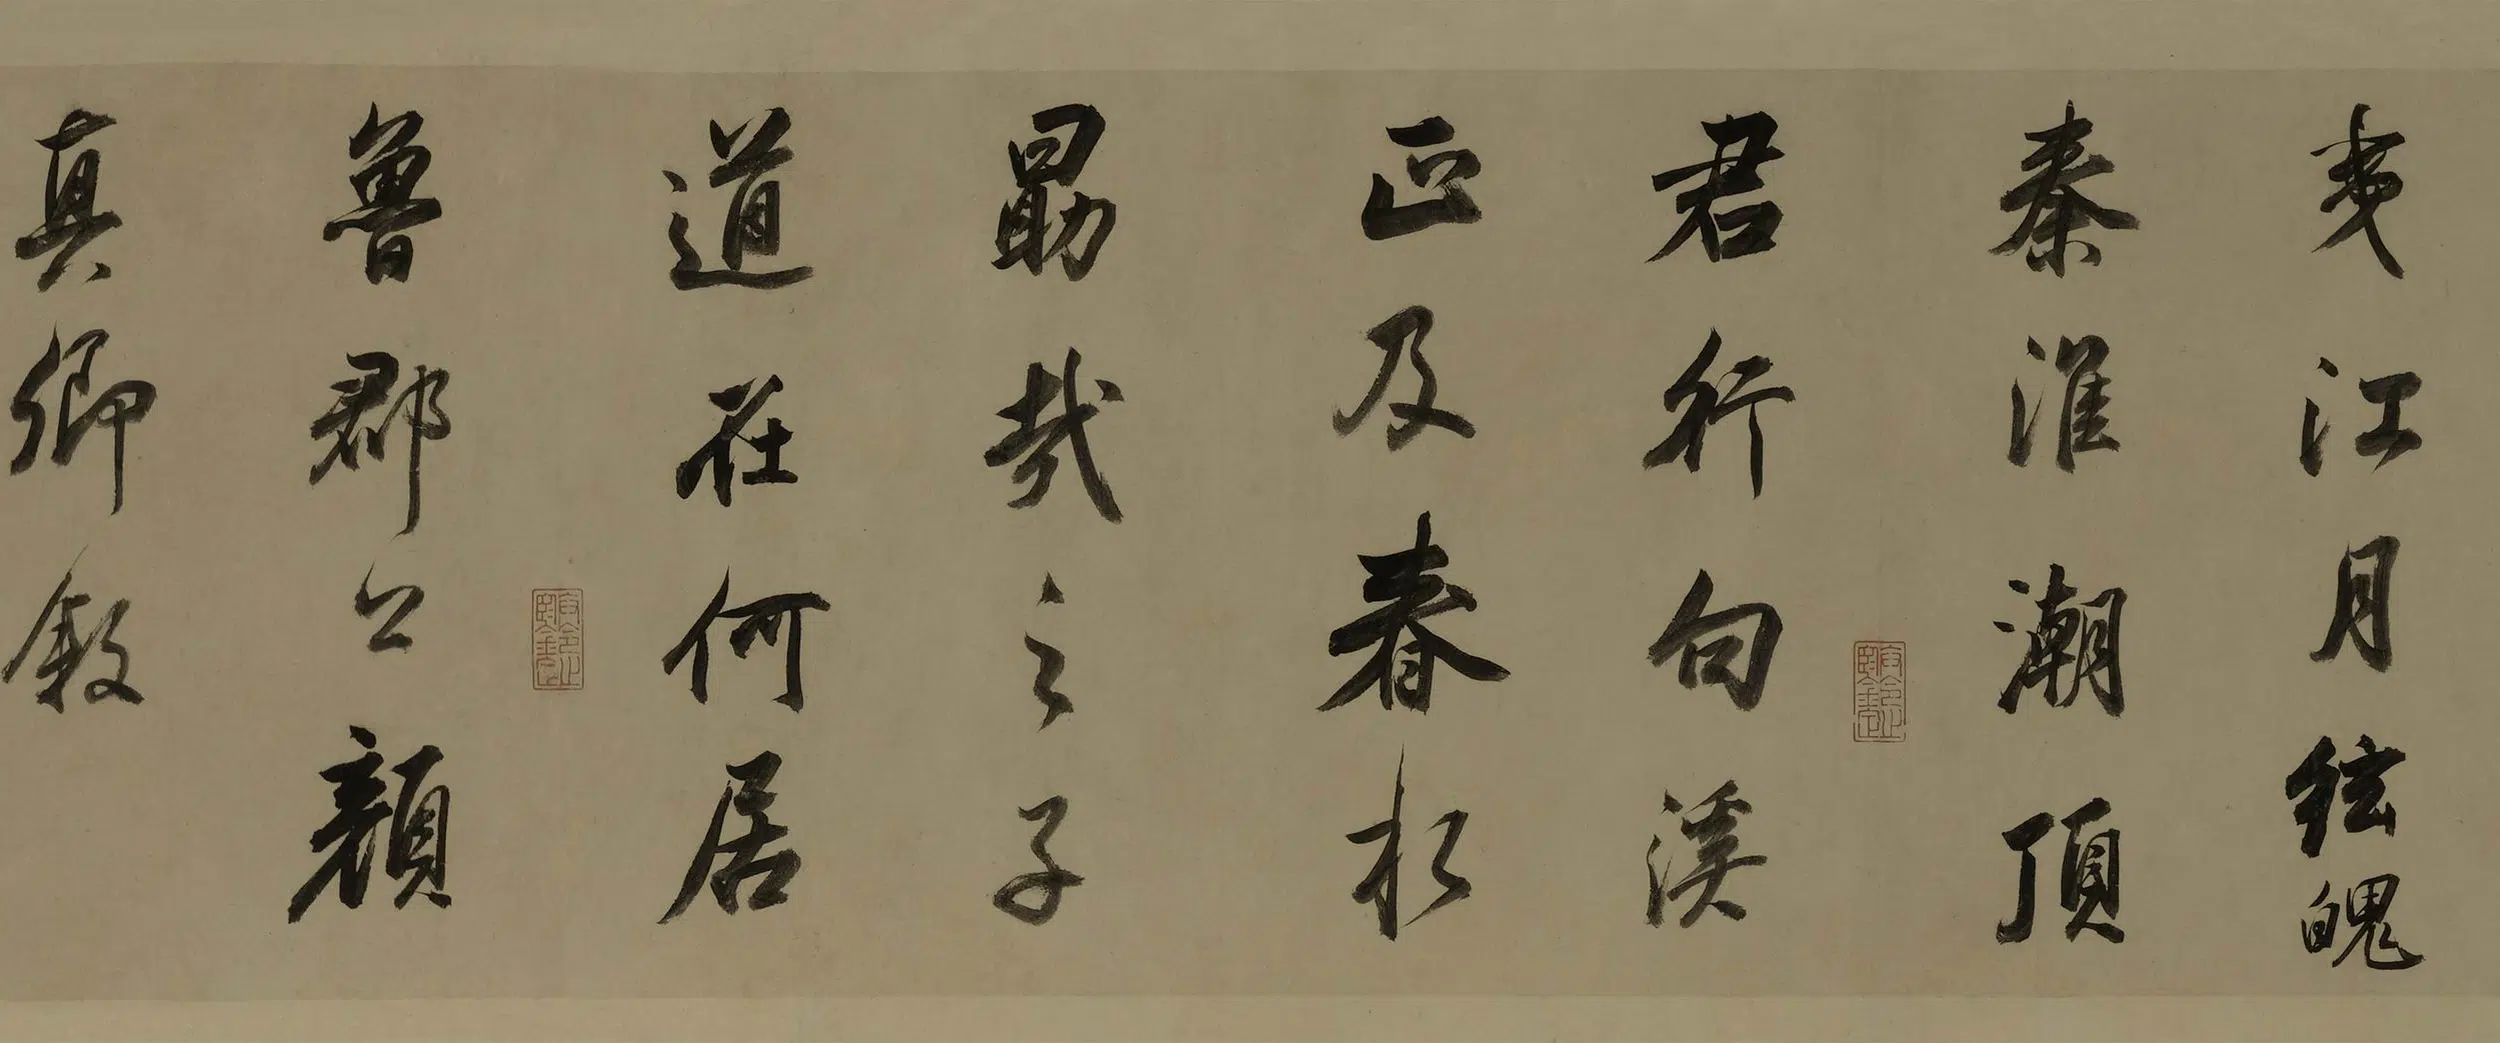 夷江月弦魄
秦淮潮頂
君行句溪
正及春杉
勗哉之子
道在何居
魯郡公顏
真卿敘